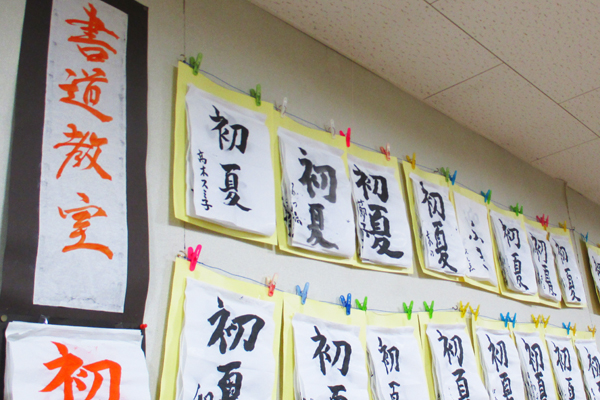 書道教室
初
初夏
高木スミ子
初夏
初夏
初夏
ふき
初夏
初夏
初夏
初夏
初夏
初夏
初夏
初夏
初夏
初夏
初夏